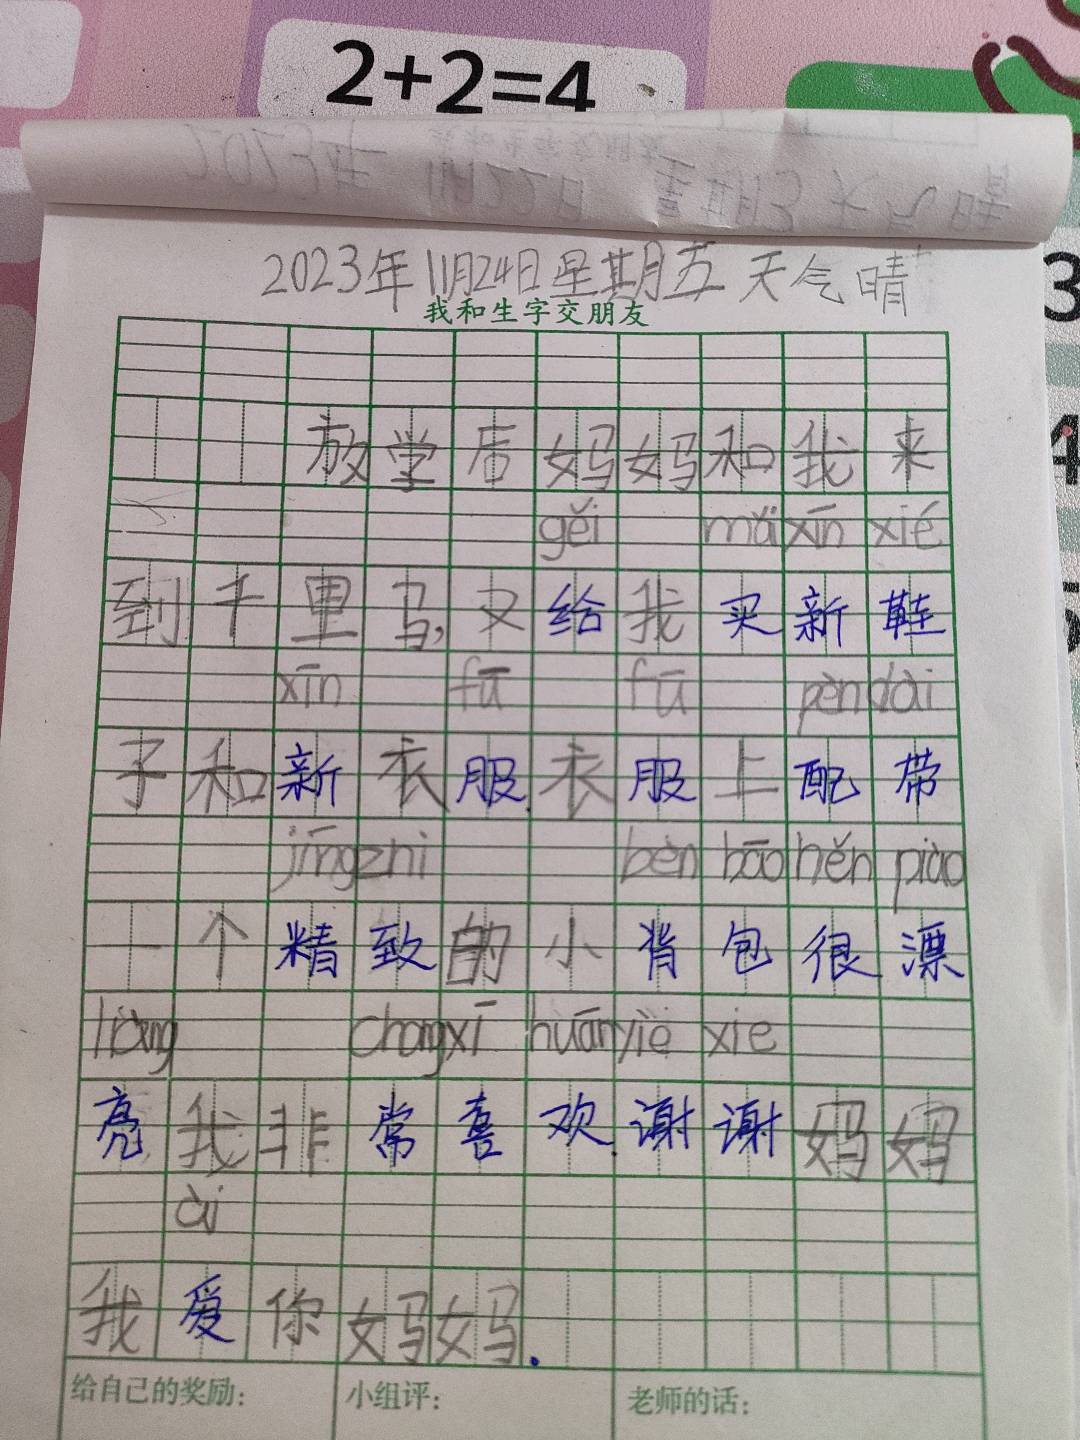 2+2=4
2023年11月24日星期五 天气晴
我和生字交朋友
放学后妈妈和我来
gěi mǎi xīn xié
到千里马,又给我买新鞋
xīn fū fū pèn dài
子和新衣服.衣服上配带
jīng zhi bèn bāo hěn piào
一个精致的小背包很漂
liàng chang xī huān yiè xie
亮.我非常喜欢.谢谢妈妈
ài
我爱你妈妈.
给自己的奖励: 小组评: 老师的话:
3
4
5